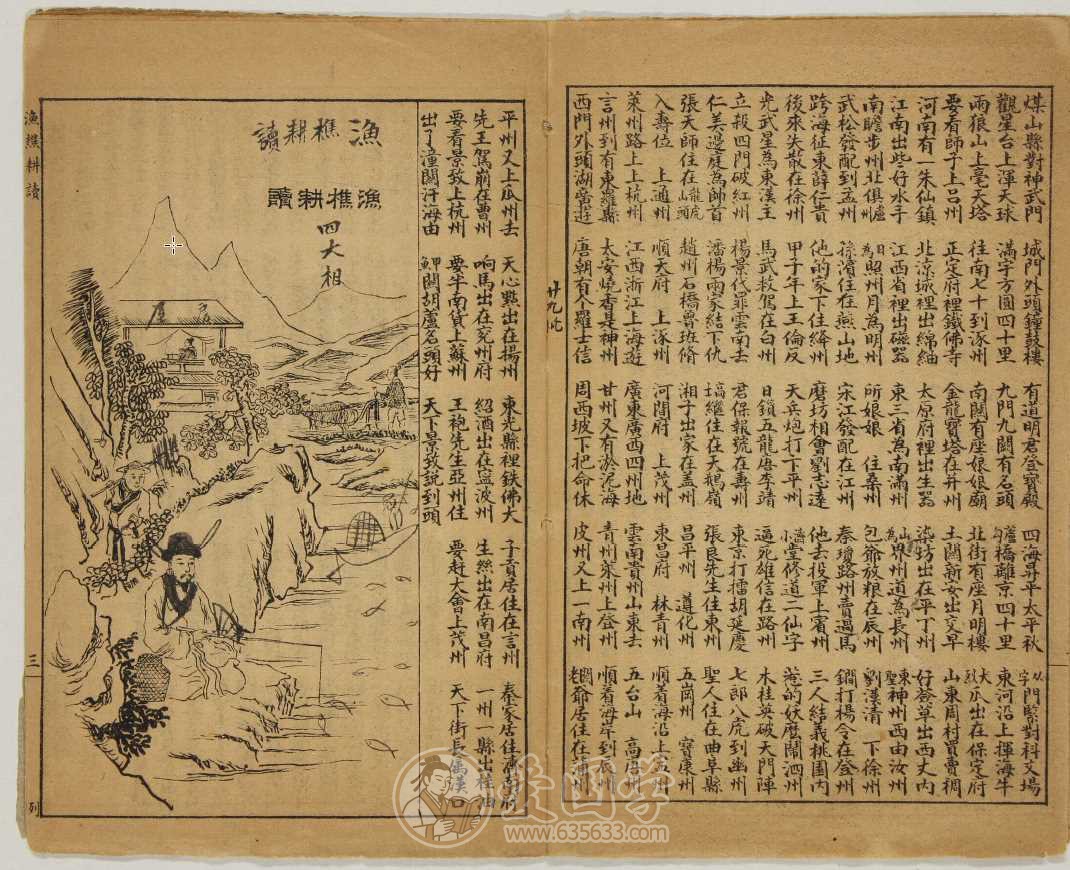 煤山縣對神武門 城門外頭鐘鼓樓 有道明君登寶殿 四海昇平太平秋 字門緊對科文場
觀星台上渾天球 滿宇方圓四十里 九門九關有名頭 橋離京四十里 東河沿上揮海牛
兩狼山上毫天塔 往南七十到涿州 南關有座娘娘廟 北街有座月明樓 瓜出在保定府
要看師子上呂州 正定府裡鐵佛寺 金龍寶塔在并州 土關新安出交早 山東周村買賣稠
河南有一朱仙鎮 北涼城裡出綿紬 太原府裡出生器 染坊出在平丁州 好簽草出西丈內
江南出些好水手 江西省裡出磁器 東三省為南滿州 州道為長州 東神州西由汝州
南瞻步州北俱盧 日為照州月為明州 所娘娘 住桑州 包爺放粮在辰州 劉漢清 下徐州
武松發配到孟州 孫濱住在燕山地 宋江發配在江州 秦瓊路州賣過馬 鐧打楊令在登州
跨海征東薛仁貴 他的家下住絳州 磨坊相會劉志達 他去投軍上賓州 三人結義桃園內
後來失散在徐州 甲子年上王倫反 天兵炮打下平州 堂修道二仙字 菴的妖麽鬧泗州
光武星為東漢主 馬武救駕在白州 日鎖五龍唐李靖 逼死雄信在路州 木桂英破天門陣
立殺四門破紅州 楊景代罪雲南去 君保報號在壽州 東京打擂胡延慶 七郎八虎到幽州
仁美邊庭為帥首 潘楊兩家結下仇 塙繼住在天鵝嶺 張良先生住東州 聖人住在曲阜縣
張天師住在龍虎山頭 趙州石橋魯班脩 湘子出家在蓋州 昌平州 遵化州 五崗州 寶康州
入壽位 上通州 順天府 上涿州 河間府 上茂州 東昌府 林青州 順着海沿上州
萊州路上上杭州 江西浙江上海遊 廣東廣西四州地 雲南貴州山東去 五台山 高唐州
言州到有東羅縣 太安燒香是神州 甘州又有於泥海 青州萊州上登州 順着海岸到辰州
西門外頭湖當遊 唐朝有个羅士信 周西坡下把命休 皮州又上一南州 關老爺居住在蒲州
平州又上瓜州去 天心㸃出在揚州 東光縣裡鉄佛大 子貢居住在言州 秦家居住濟南府
先王駕崩在曹州 响馬出在兖州府 紹酒出在寧波州 生絲出在南昌府 一州一縣出桂油
要看景致上杭州 要半南貨上蘇州 王袍先生亞州住 要赶大會上茂州 天下街長屬漢口
出了潼關洋海由 甲鮮關胡蘆名頭好 天下景致說到頭
漁樵耕讀
漁樵耕讀
四大相
漁樵耕讀
三
列
爱国学
www.635633.com